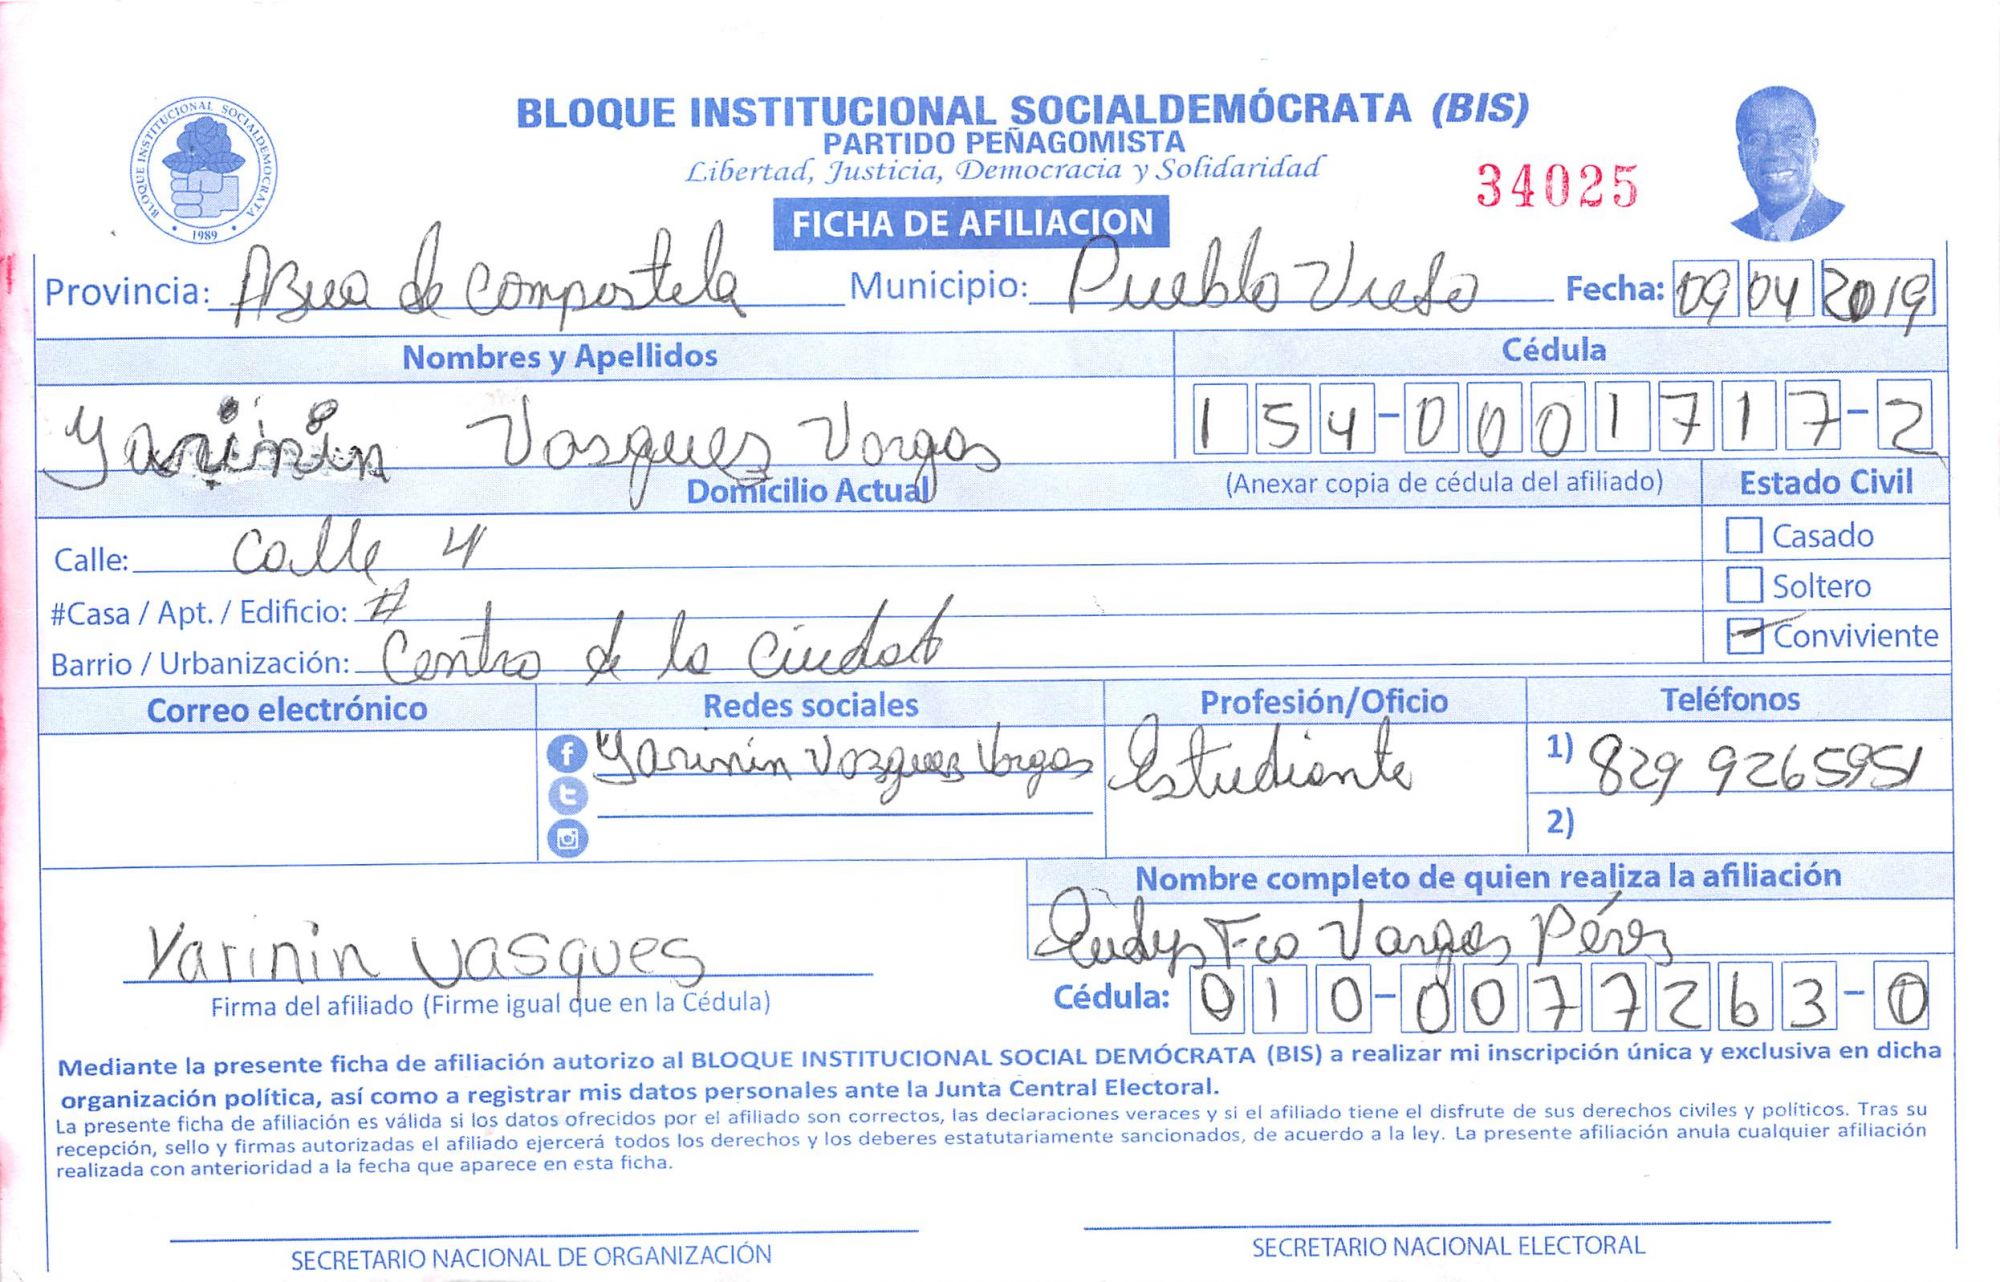 BLOQUE INSTITUCIONAL SOCIALDEMOCRATA
1989
BLOQUE INSTITUCIONAL SOCIALDEMÓCRATA (BIS)
PARTIDO PEÑAGOMISTA
Libertad, Justicia, Democracia y Solidaridad
34025
FICHA DE AFILIACION
Provincia: Asua de Compostela Municipio: Pueblo Viejo Fecha: 09 04 2019
Nombres y Apellidos Cédula
Yarinin Vasques Vargas 154-0001717-2
Domicilio Actual (Anexar copia de cédula del afiliado) Estado Civil
Calle: Calle 4 Casado
#Casa / Apt. / Edificio: # Soltero
Barrio / Urbanización: Centro de la Ciudad Conviviente
Correo electrónico Redes sociales Profesión/Oficio Teléfonos
Yarinin Vazques Vargas Estudiante 1) 829 9265951
2)
Nombre completo de quien realiza la afiliación
Eudys Fco Vargas Pérez
Yarinin Vasques
Firma del afiliado (Firme igual que en la Cédula) Cédula: 010-0077263-0
Mediante la presente ficha de afiliación autorizo al BLOQUE INSTITUCIONAL SOCIAL DEMÓCRATA (BIS) a realizar mi inscripción única y exclusiva en dicha
organización política, así como a registrar mis datos personales ante la Junta Central Electoral.
La presente ficha de afiliación es válida si los datos ofrecidos por el afiliado son correctos, las declaraciones veraces y si el afiliado tiene el disfrute de sus derechos civiles y políticos. Tras su
recepción, sello y firmas autorizadas el afiliado ejercerá todos los derechos y los deberes estatutariamente sancionados, de acuerdo a la ley. La presente afiliación anula cualquier afiliación
realizada con anterioridad a la fecha que aparece en esta ficha.
SECRETARIO NACIONAL DE ORGANIZACIÓN SECRETARIO NACIONAL ELECTORAL